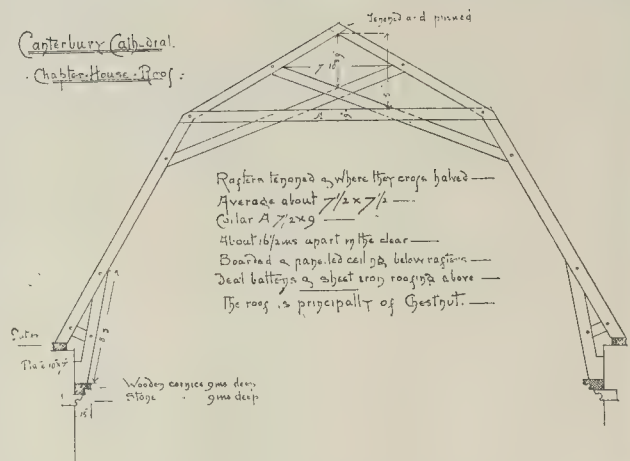 Canterbury Cathedral.
Chapter-House Roof:
Tenoned and pinned
7 10
Rafters tenoned & where they cross halved
Average about 7 1/2 x 7 1/2
Collar A 7 1/2 x 9
About 16 1/2 ins apart in the clear
Boarded & panelled ceiling below rafters
Deal battens & sheet iron roofing above
The roof is principally of Chestnut.
Plate
Wooden cornice 9 ins deep
Stone " 9 ins deep
15"